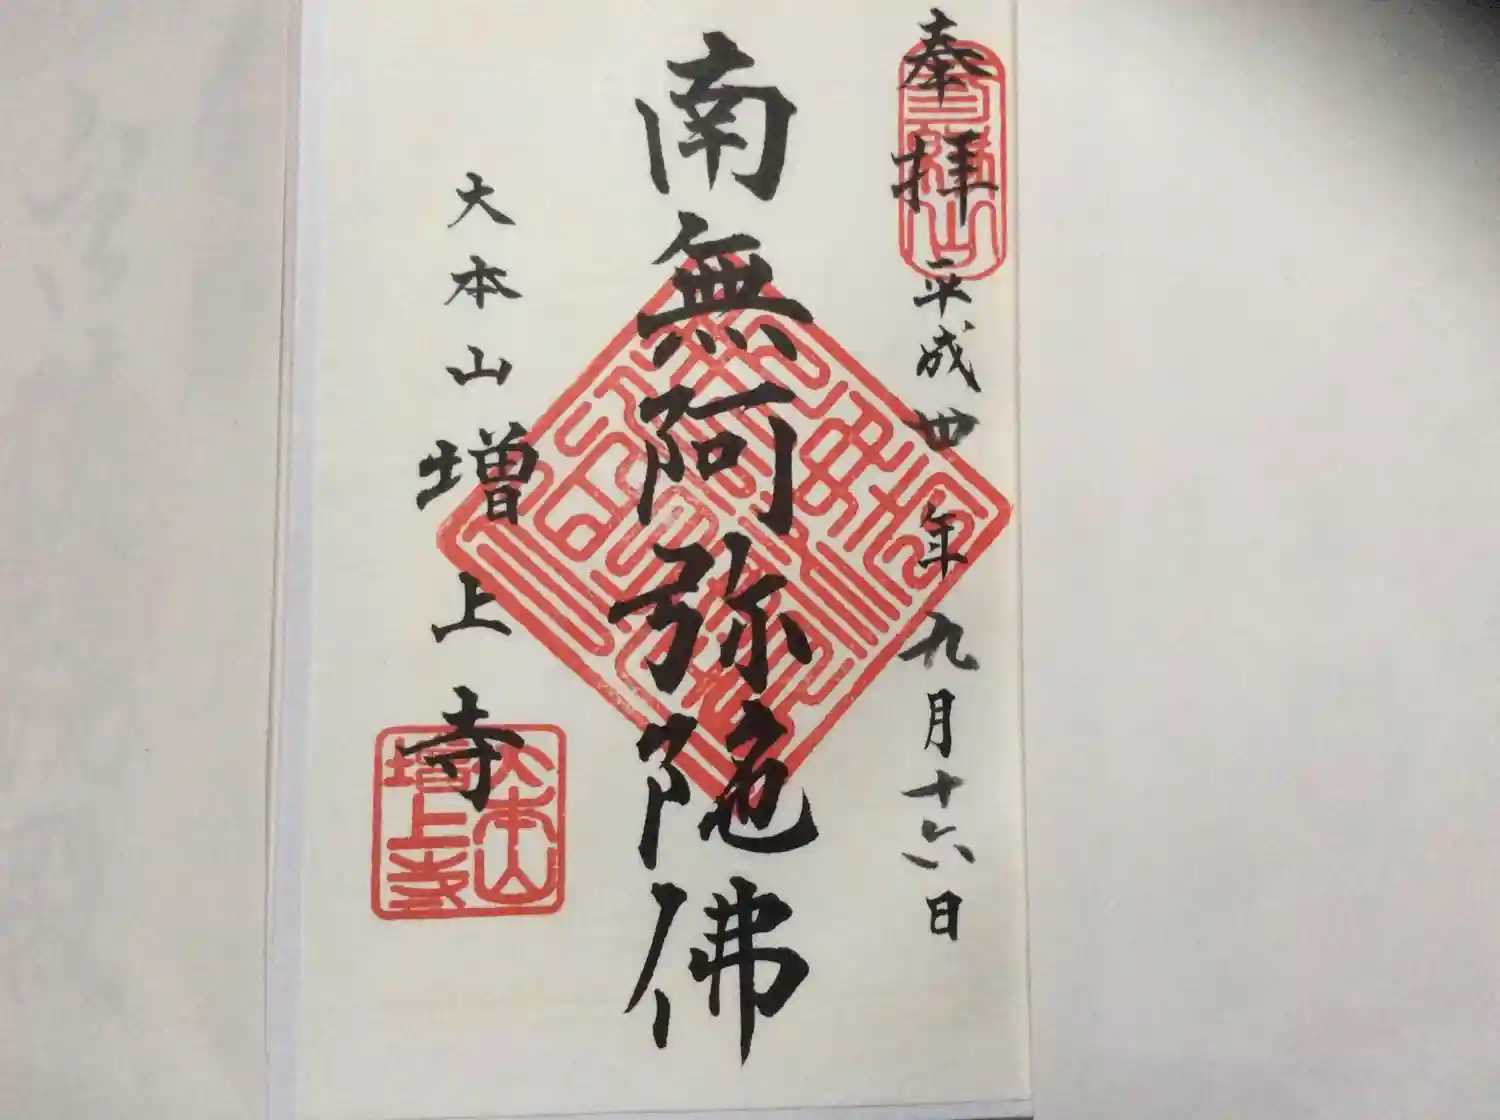 奉拝 平成丗年九月十六日
三縁山
南無阿弥陀佛
大本山増上寺
大本山
増上寺